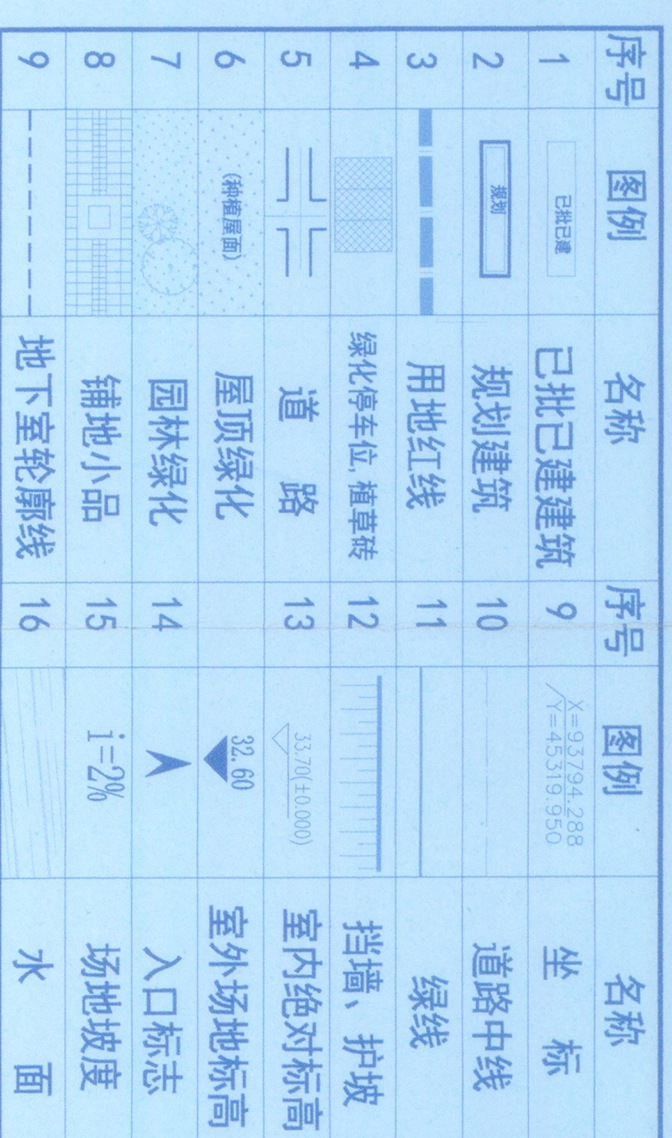 序号 图例 名称 序号 图例 名称
1 已批已建 已批已建建筑 9 X=93794.288 坐 标
Y=45319.950
2 规划 规划建筑 10 道路中线
3 用地红线 11 绿线
4 绿化停车位,植草砖 12 挡墙、护坡
5 道 路 13 33.70(±0.000) 室内绝对标高
6 (种植屋面) 屋顶绿化 32.60 室外场地标高
7 园林绿化 14 入口标志
8 铺地小品 15 i=2% 场地坡度
9 地下室轮廓线 16 水 面